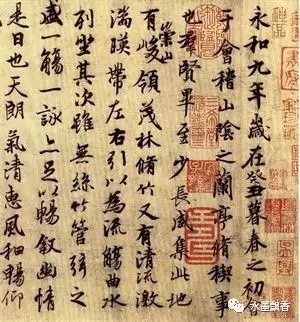 永和九年歲在癸丑暮春之初
于會稽山陰之蘭亭脩稧事
也羣賢畢至少長咸集此地
有崇山峻領茂林脩竹又有清流激
湍暎帶左右引以為流觴曲水
列坐其次雖無絲竹管弦之
盛一觴一詠亦足以暢叙幽情
是日也天朗氣清惠風和暢仰
永墨飘香